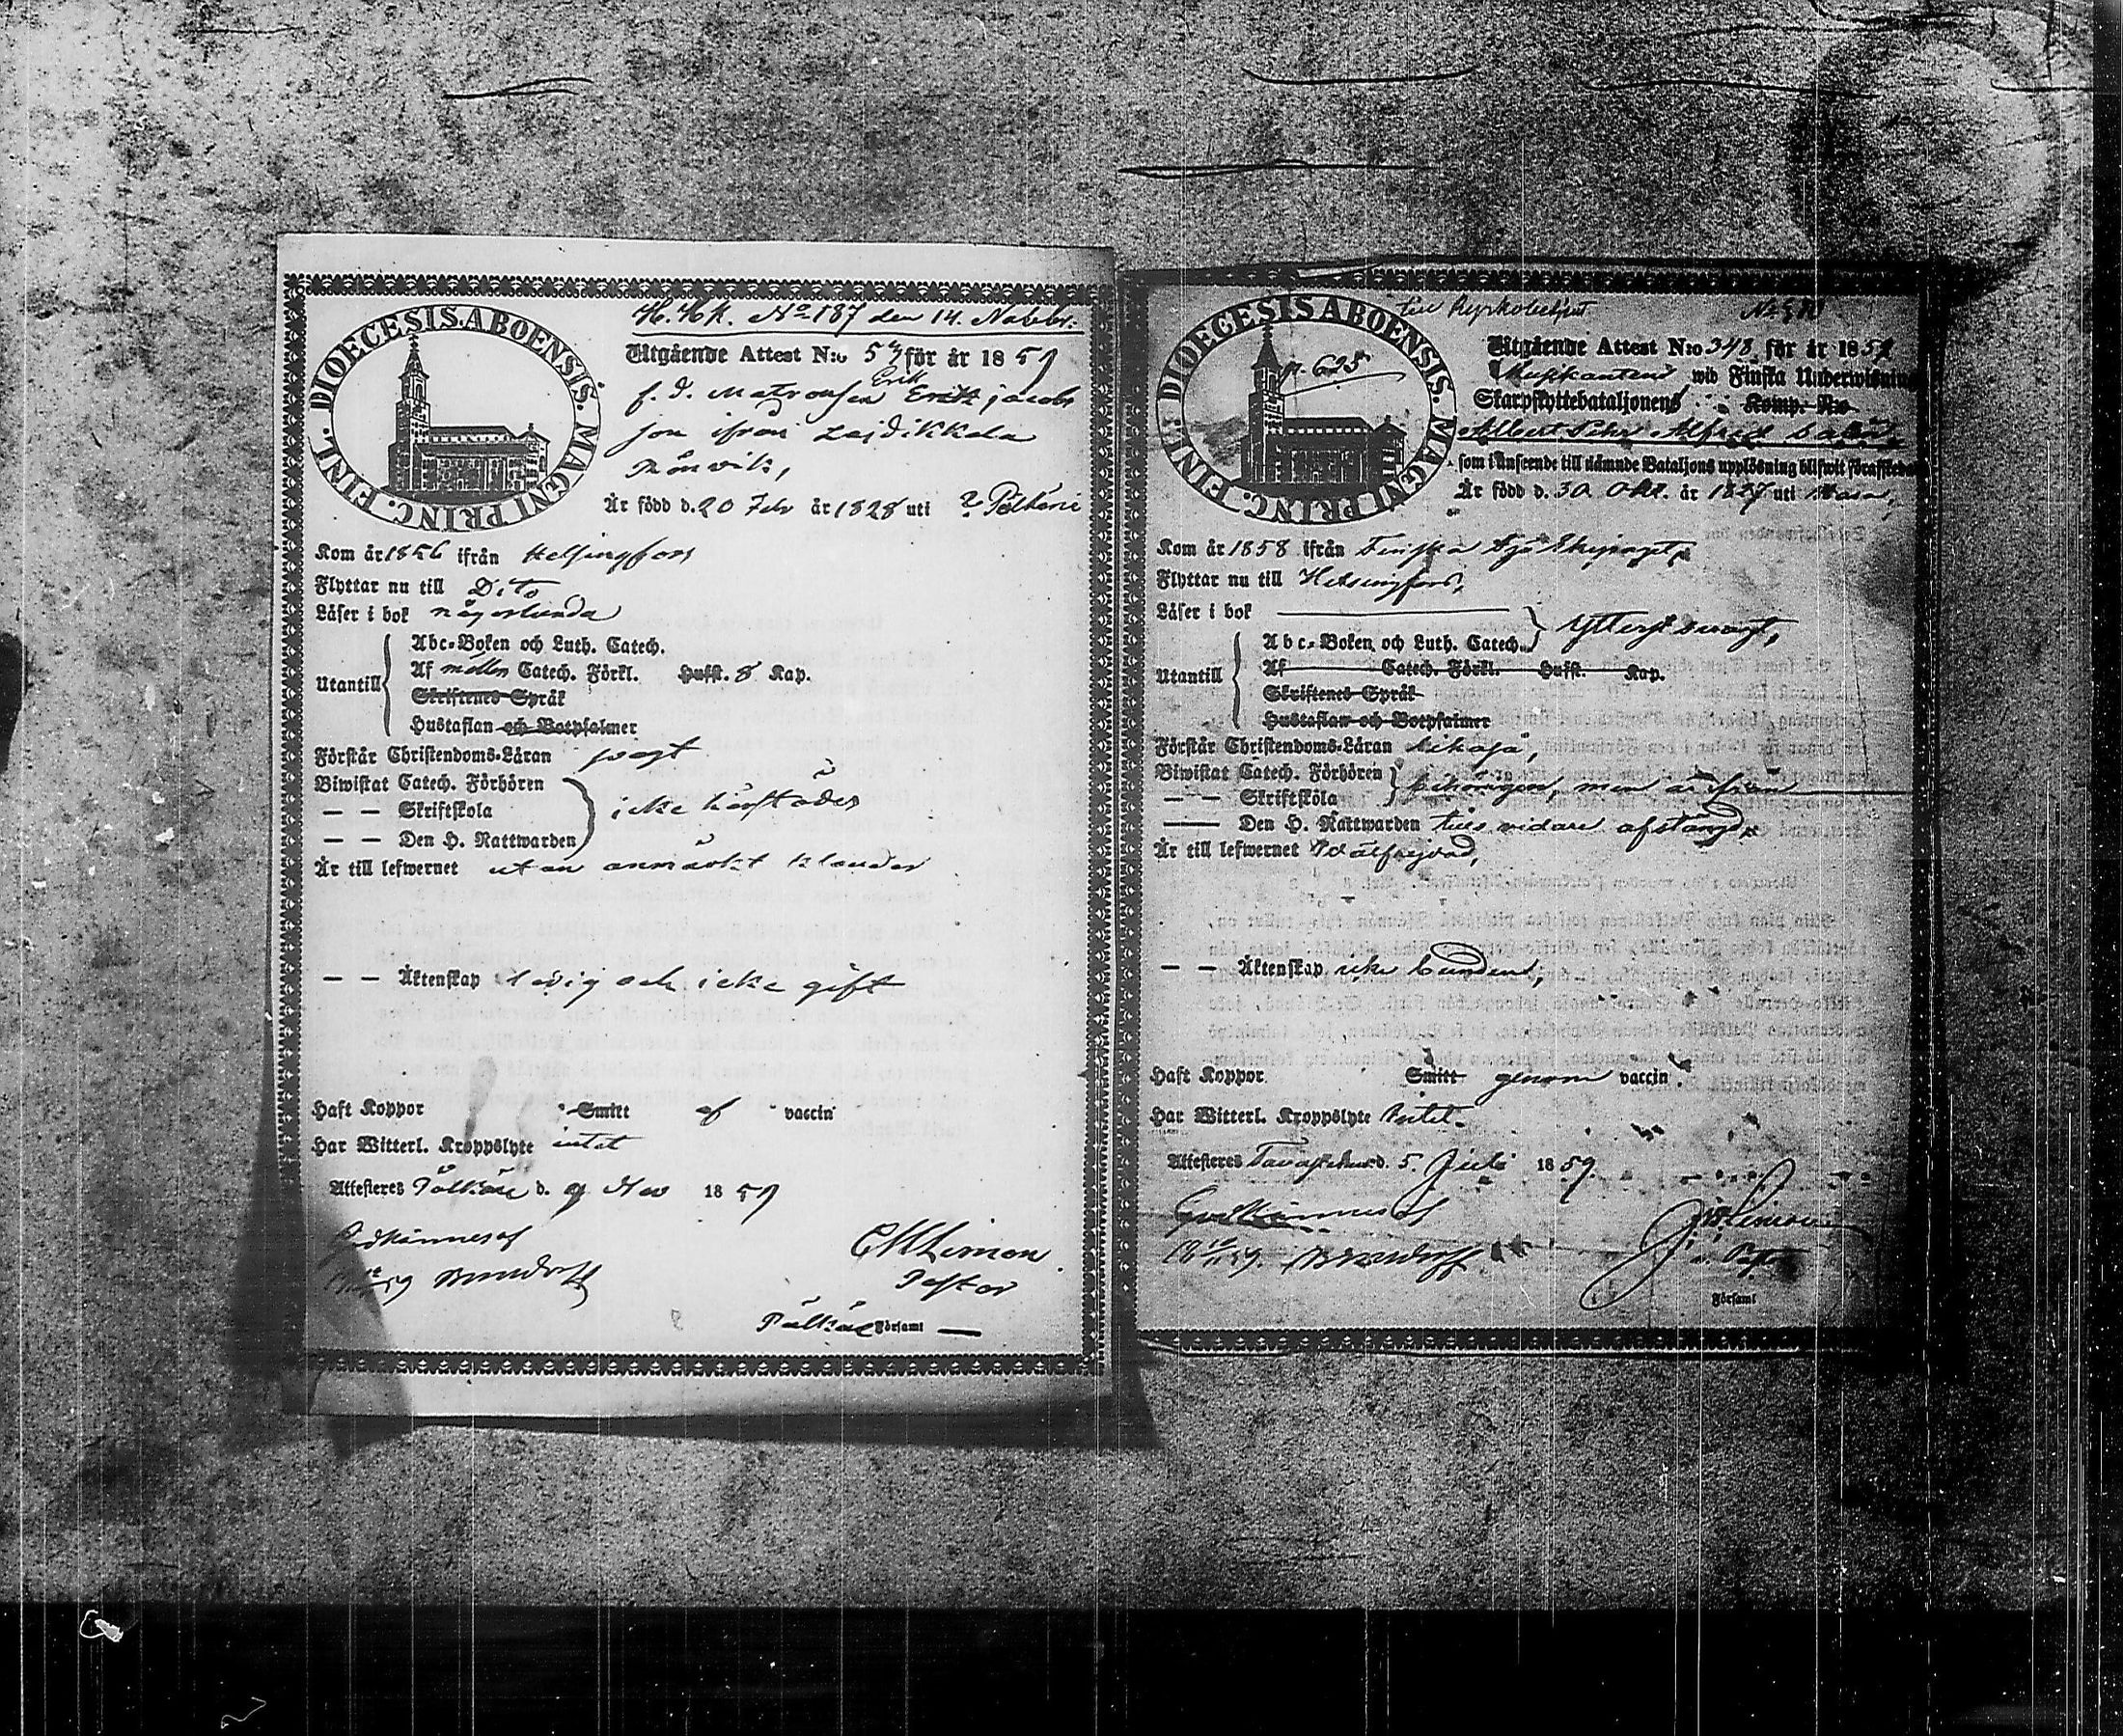 H. Hf. No 187 den 14. Novbr.
DIOECESIS ABOENSIS. MAGNI PRINC. FINL.
Utgående Attest N:o 57 för år 1859
Erik
f. d. Matrosen Erik Jacobs
son ifrån
Är född d. 20 Feb år 1828 uti ? Pälkäne
Kom år 1856 ifrån Helsingfors
Flyttar nu till Dito
Läser i bok någorlunda
Abc-Boken och Luth. Catech.
Utantill Af Catech. Förkl. Husst. 8 Kap.
Skriftenes Språk
Hustaflan och Botpsalmer
Förstår Christendoms-Läran svagt
Biwistat Catech. Förhören
— — Skriftskola icke härstädes
— — Den H. Nattwarden
Är till lefwernet utan anmärkt klander
— — Äktenskap ledig och icke gift
Haft Koppor Smitt af vaccin
Har Witterl. Kroppslyte intet
Attesteres Pälkäne d. 9 Nov 1859
Godkännes af
Pastor
Pälkäne Församl
till
DIOECESIS ABOENSIS. MAGNI PRINC. FINL.
p. 625
Utgående Attest N:o 348 för år 1859
Musikanten wid Finska Underwisnings
Skarpskyttebataljonens Komp. N:o
Albert Alfred
som i anseende till nämnde Bataljons upplösning blifwit
Är född d. 30. Okt. år 1827 uti
Kom år 1858 ifrån Finska Sjö Ekipaget,
Flyttar nu till Helsingfors,
Läser i bok
Abc-Boken och Luth. Catech. ytterst svagt,
Utantill Af Catech. Förkl. Husst. Kap.
Skriftenes Språk
Hustaflan och Botpsalmer
Förstår Christendoms-Läran likaså,
Biwistat Catech. Förhören
— — Skriftskola behörigen, men är ifrån
— — Den H. Nattwarden tills vidare afstängd,
Är till lefwernet
— — Äktenskap icke bunden,
Haft Koppor Smitt genom vaccin
Har Witterl. Kroppslyte Intet.
Attesteres Tavastehus d. 5. Juli 1859.
Godkännes af
Församl